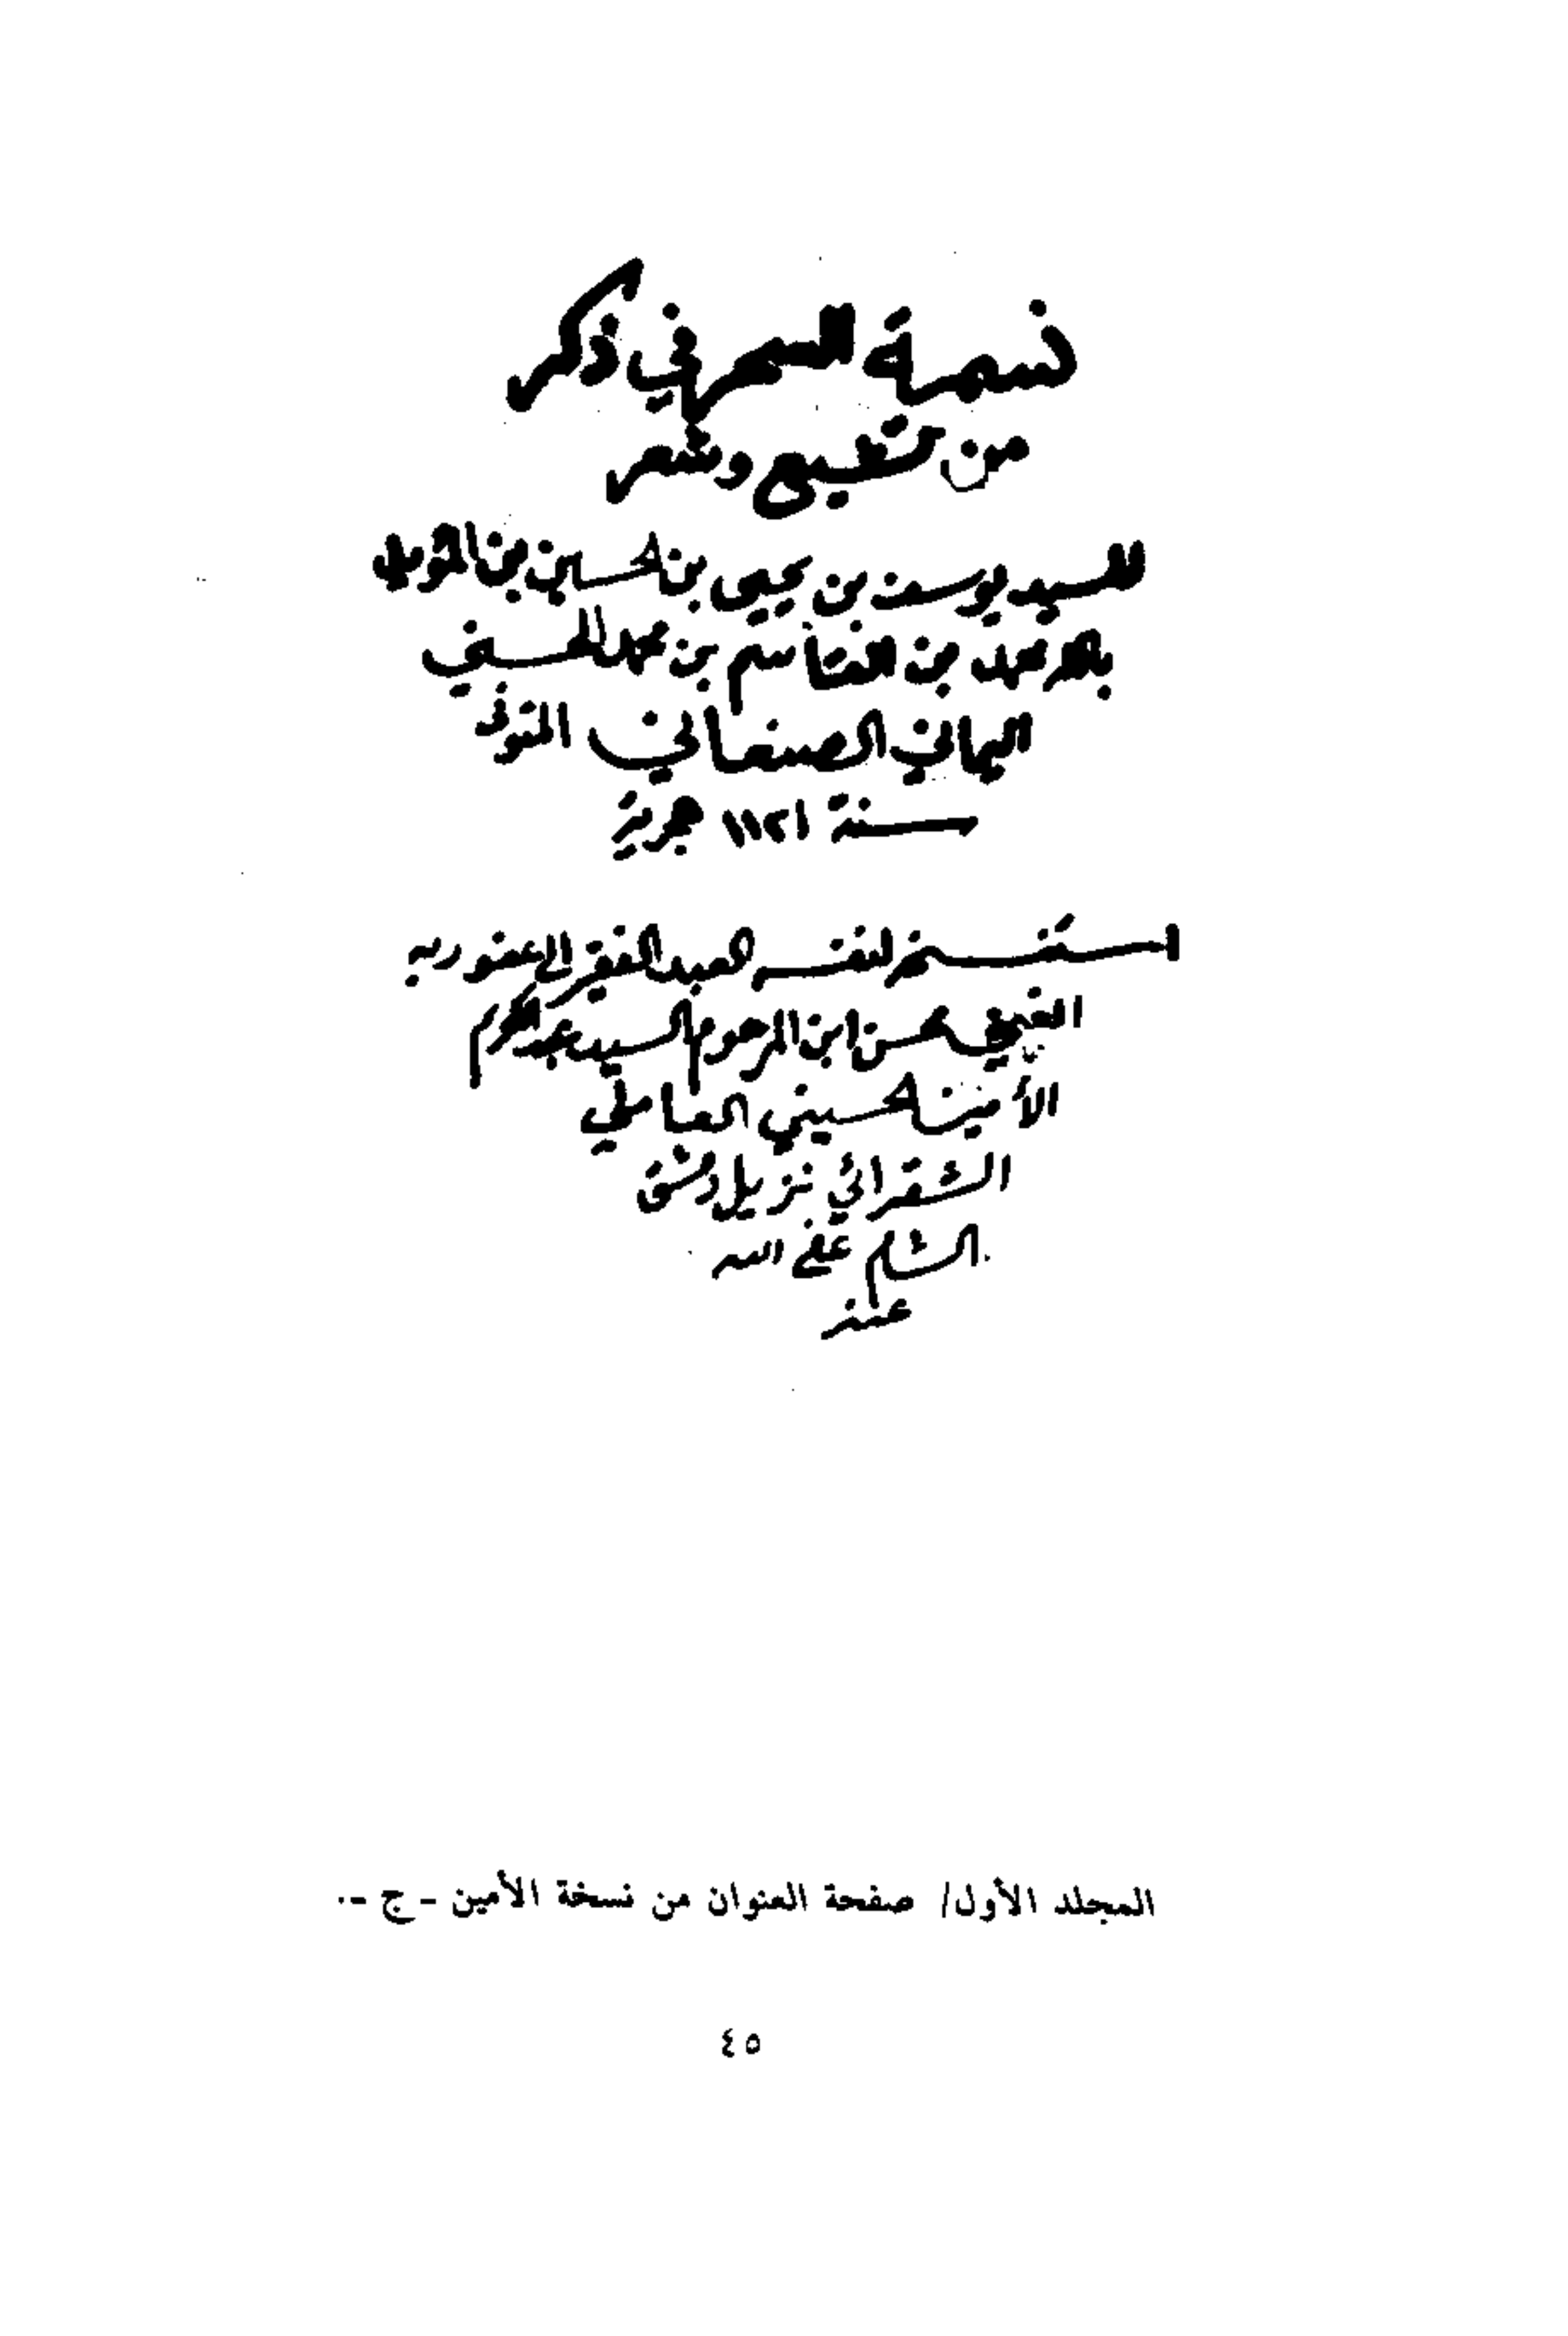 نسمة السحر في ذكر
من تشيع وشعر
للسيد يوسف بن يحيى بن الحسين بن المؤيد
بالله محمد بن القاسم بن محمد الحسني
اليماني الصنعاني المتوفى
سنة ١١٢١ هجرية
استنسخه لنفسه العبد الفقير الى عفو ربه
الغني محسن ابن المرحوم السيد عبد الكريم
الأمين الحسيني العاملي
الشقرائي نزيل دمشق
الشام عفى الله
عنه
المجلد الأول/ صفحة العنوان من نسخة الأمين - ج -.
٤٥